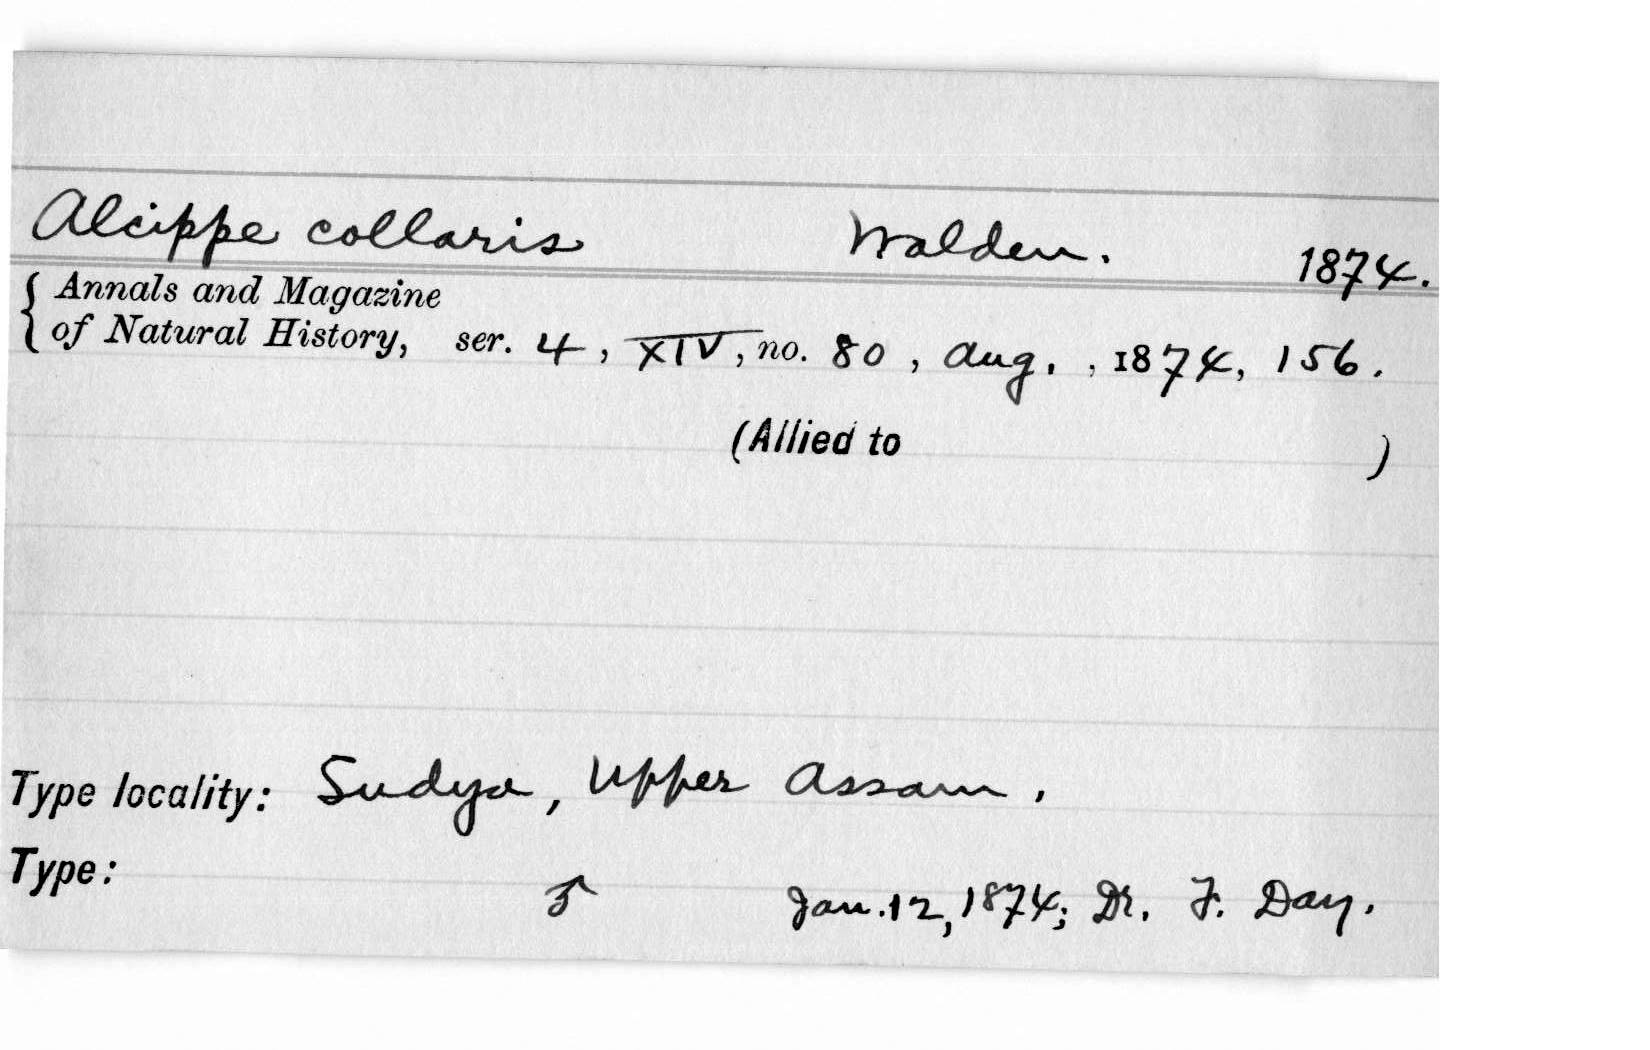 Alcippe collaris Walden. 1874.
{ Annals and Magazine
of Natural History, ser. 4, XIV, no. 80, Aug., 1874, 156.
(Allied to )
Type locality: Sudya, Upper Assam.
Type: ♂ Jan. 12, 1874; Dr. F. Day.